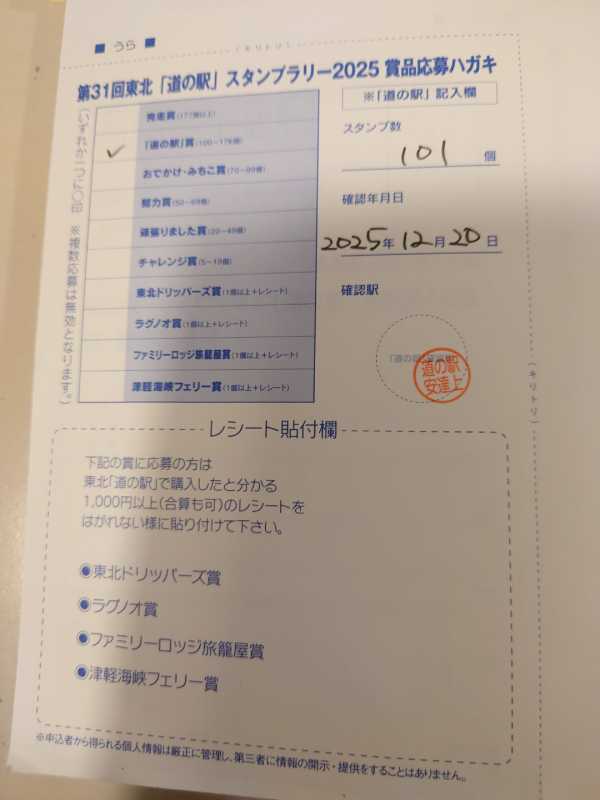 ■ うら ■
(キリトリ)
第31回東北「道の駅」スタンプラリー2025 賞品応募ハガキ
(いずれか一つに○印 ※複数応募は無効となります。)
完走賞(177個以上)
✓ 「道の駅」賞(100~176個)
おでかけ・みちこ賞(70~99個)
努力賞(50~69個)
頑張りました賞(20~49個)
チャレンジ賞(5~19個)
東北ドリッパーズ賞(1個以上+レシート)
ラグノオ賞(1個以上+レシート)
ファミリーロッジ旅籠屋賞(1個以上+レシート)
津軽海峡フェリー賞(1個以上+レシート)
※「道の駅」記入欄
スタンプ数
101 個
確認年月日
2025年 12月 20日
確認駅
道の駅
安達上
(キリトリ)
レシート貼付欄
下記の賞に応募の方は
東北「道の駅」で購入したと分かる
1,000円以上(合算も可)のレシートを
はがれない様に貼り付けて下さい。
◉東北ドリッパーズ賞
◉ラグノオ賞
◉ファミリーロッジ旅籠屋賞
◉津軽海峡フェリー賞
※申込者から得られる個人情報は厳正に管理し、第三者に情報の開示・提供をすることはありません。